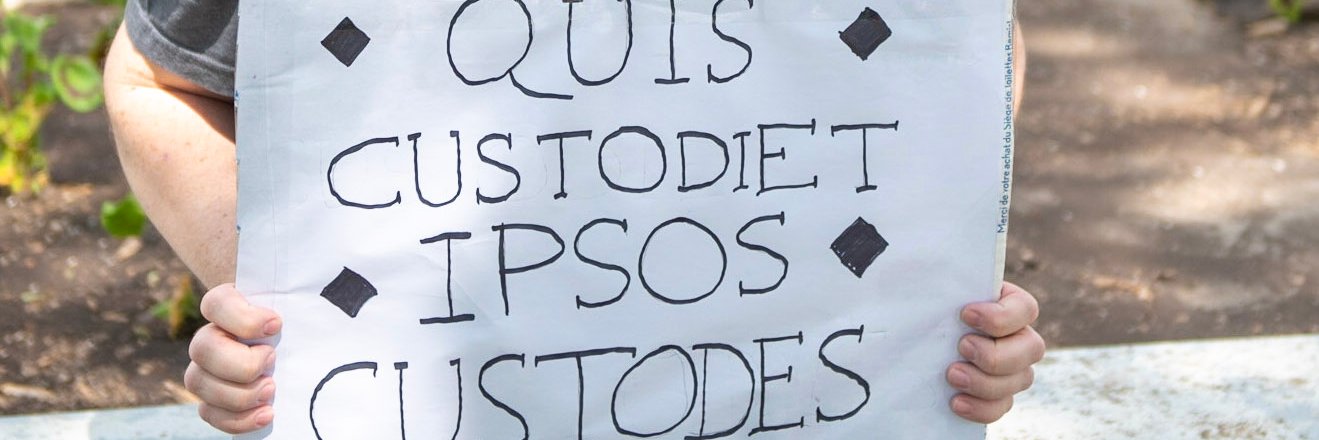 QUIS
CUSTODIET
IPSOS
CUSTODES
Merci de votre achat du Siège de toilettes Bemis!